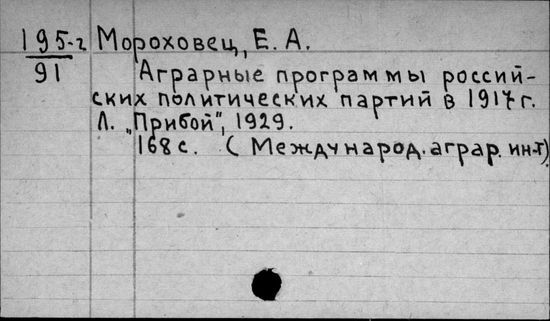 195-г Мороховец, Е. А.
91 Аграрные программы россий-
ских политических партий в 1917 г.
Л. „Прибой", 1929.
168 с. (Международ. аграр. ин-т)